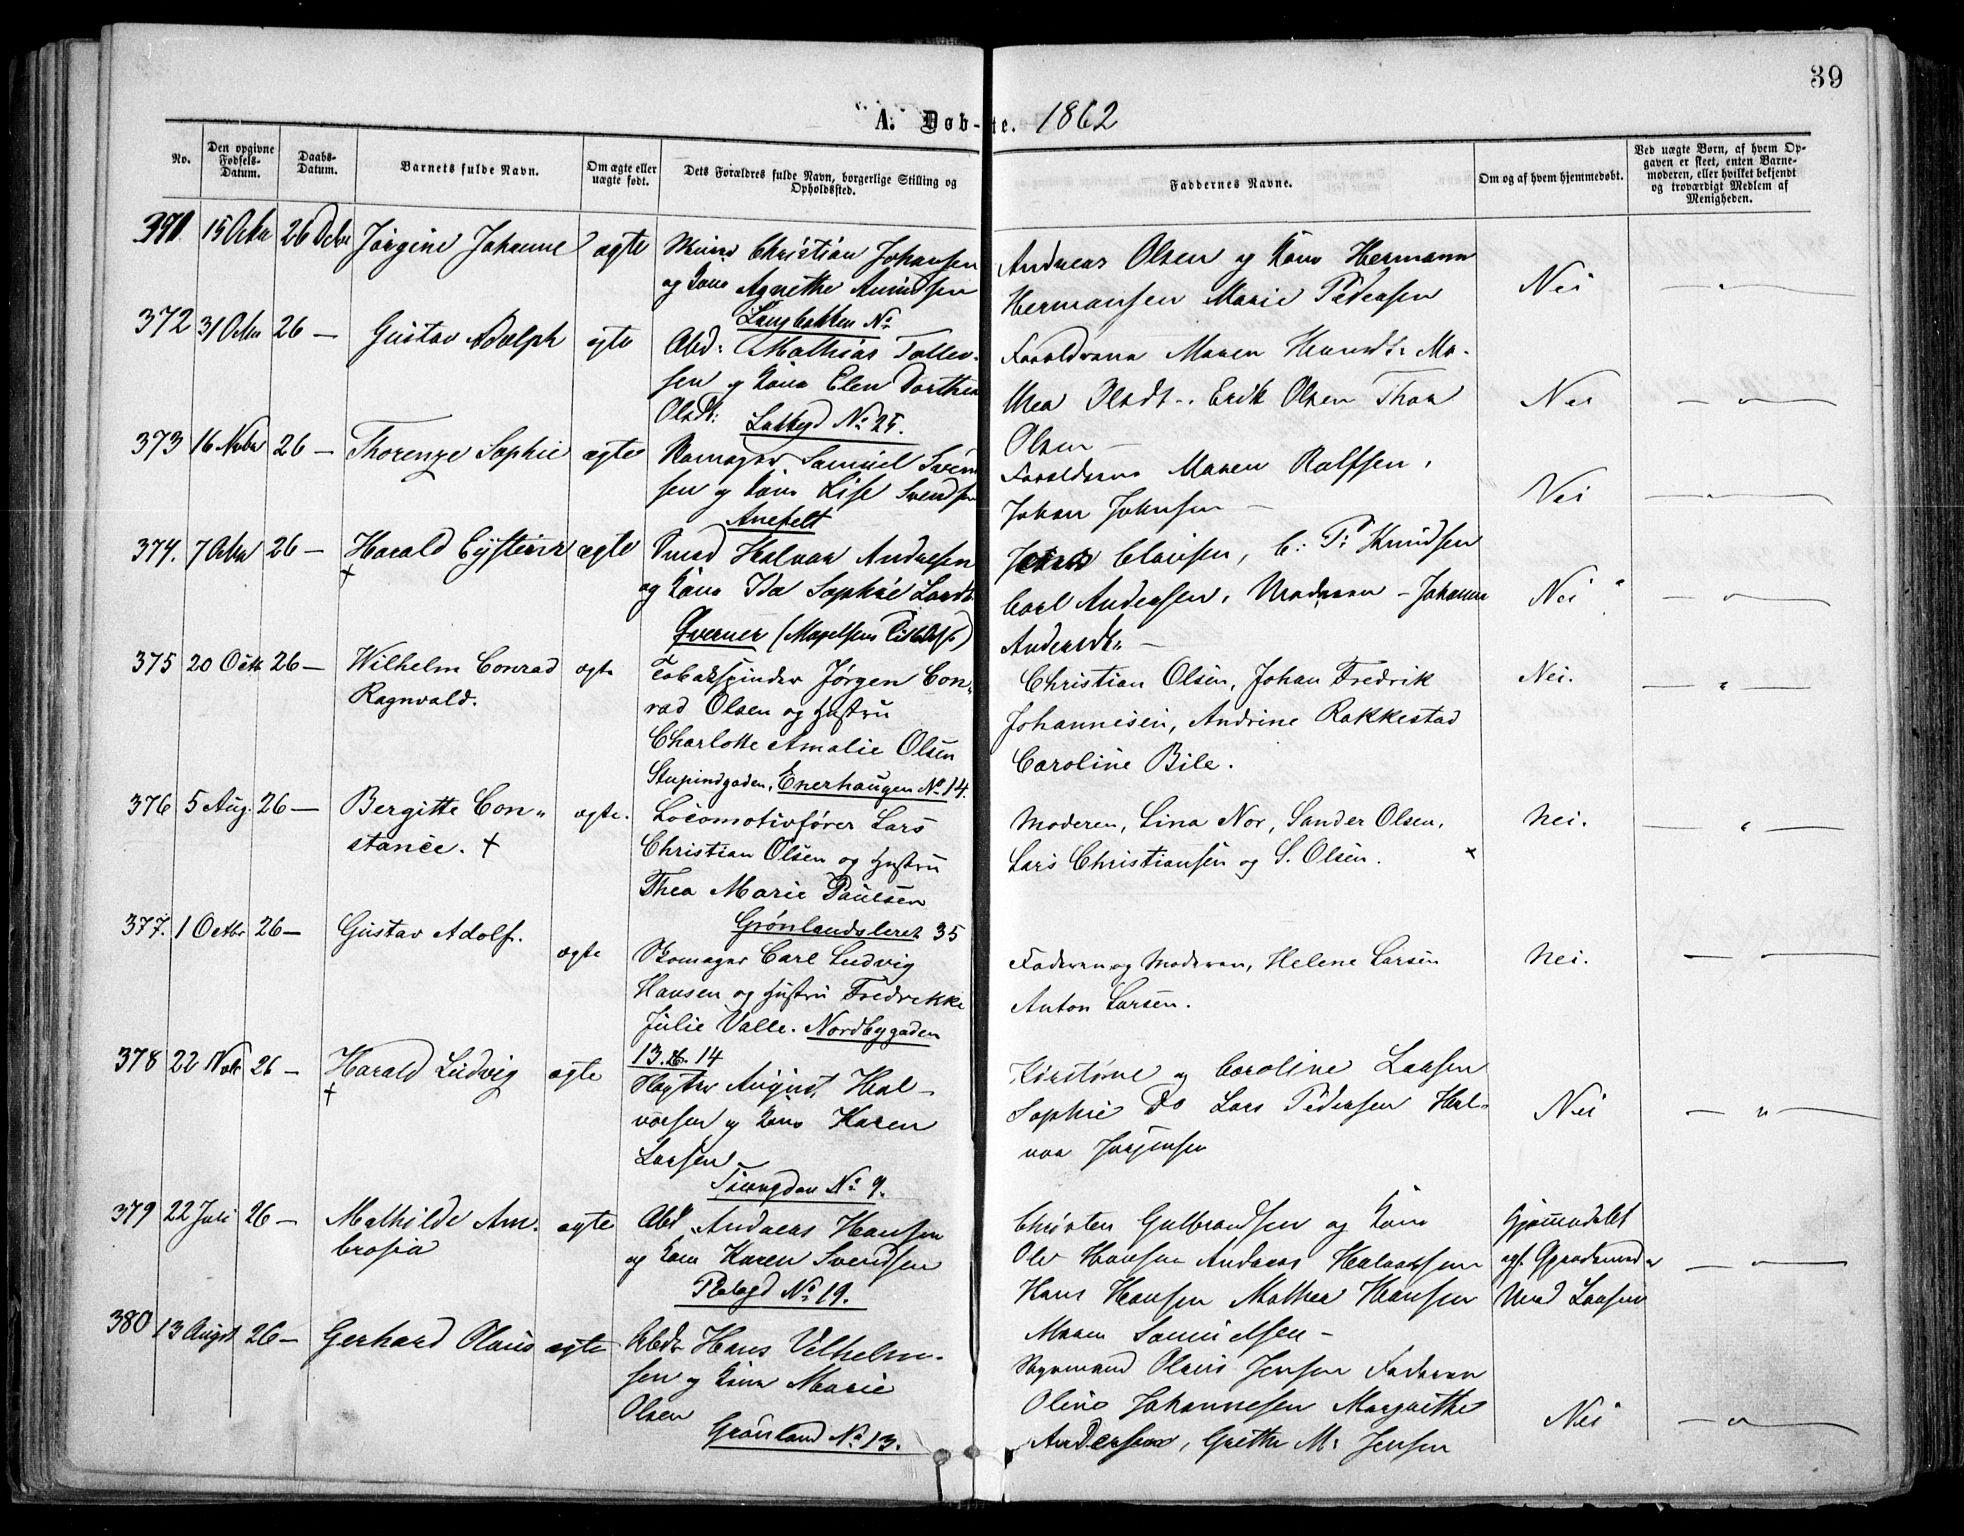 39
A. Døb-te. 1862
No.
Den opgivne Fødsels-Datum.
Daabs-Datum.
Barnets fulde Navn.
Om ægte eller uægte født.
Dets Forældres fulde Navn, borgerlige Stilling og Opholdssted.
Faddernes Navne.
Om og af hvem hjemmedøbt.
Ved uægte Børn, af hvem Opgaven er skeet, enten Barnemoderen, eller hvilket bekjendt og troværdigt Medlem af Menigheden.
371 15 Octbr 26 Decbr Jørgine Johanne ægte
Christian Johansen
og Kone Agnethe Amundsen
Langbakken No
Andreas Olsen og Kone Hermann
Hermansen Marie Pedersen
Nei — " —
372 31 Octbr 26 — Gustav Adolph ægte
Abd: Mathias Tollev-
sen og Kone Elen Dorthea
Olsdt: Lakkegd No 25.
Forældrene Maren Hansdt: Ma-
thea Olsdt. Erik Olsen Thor
Olsen —
Nei — " —
373 16 Novbr 26 — Thorenze Sophie ægte
Skomager Samuel Svend
sen og Kone Lise Svendsen
Anefelt
Forældrene Maren Rolfsen,
Johan Johnsen —
Nei — " —
374. 7 Octbr 26 — Harald Eystein ægte
+
Smed Halvor Andersen
og Kone Ida Sophie Lardt
Qværner
Clausen, C: P: Knudsen
Carl Andersen, Moderen - Johanne
Andersdt. —
Nei — " —
375 20 Octb 26 — Wilhelm Conrad ægte
Ragnvald.
Tobakspinder Jørgen Con-
rad Olsen og Hustru
Charlotte Amalie Olsen
Stupindgaden, Enerhaugen No 14.
Christian Olsen, Johan Fredrik
Johannesen, Andrine Rakkestad
Caroline Bile.
Nei. — " —
376 5 Aug. 26 — Bergitte Con- ægte.
stance. +
Locomotivfører Lars
Christian Olsen og Hustru
Thea Marie Paulsen
Grønlandsleret 35
Moderen, Lina Nor, Sander Olsen,
Lars Christiansen og S. Olsen. +
Nei. — " —
377. 1 Octbr 26 — Gustav Adolf. ægte
Skomager Carl Ludvig
Hansen og Hustru Fredrikke
Julie Valle. Nordbygaden
13. & 14
Faderen og Moderen, Helene Larsen
Anton Larsen.
Nei. — —
378 22 Novbr 26 — Harald Ludvig ægte
+
Slagter August Hal-
vorsen og Kone Karen
Larsen
No 9.
Kirstine og Caroline Larsen
Sophie Do Lars Pedersen Hal-
vor Jørgensen
Nei — " —
379 22 Juli 26 — Mathilde Am- ægte
brosia
Abd Andreas Hansen
og Kone Karen Svendsen
Platgd No 19.
Christen Gulbrandsen og Kone
Ole Hansen Andreas Halvorsen
Hans Hansen Mathea Hansen
Maren Samuelsen —
Hjemmedøbt
af Gjordemod
Larsen
— " —
380 13 August 26 — Gerhard Olaus ægte
Arbdr Hans Vilhelm-
sen og Kone Marie
Olsen
Grønland No 13.
Olaus Jensen Faderen
Oline Johannesen Margrethe
Andersen, Grethe M. Jensen
Nei — " —